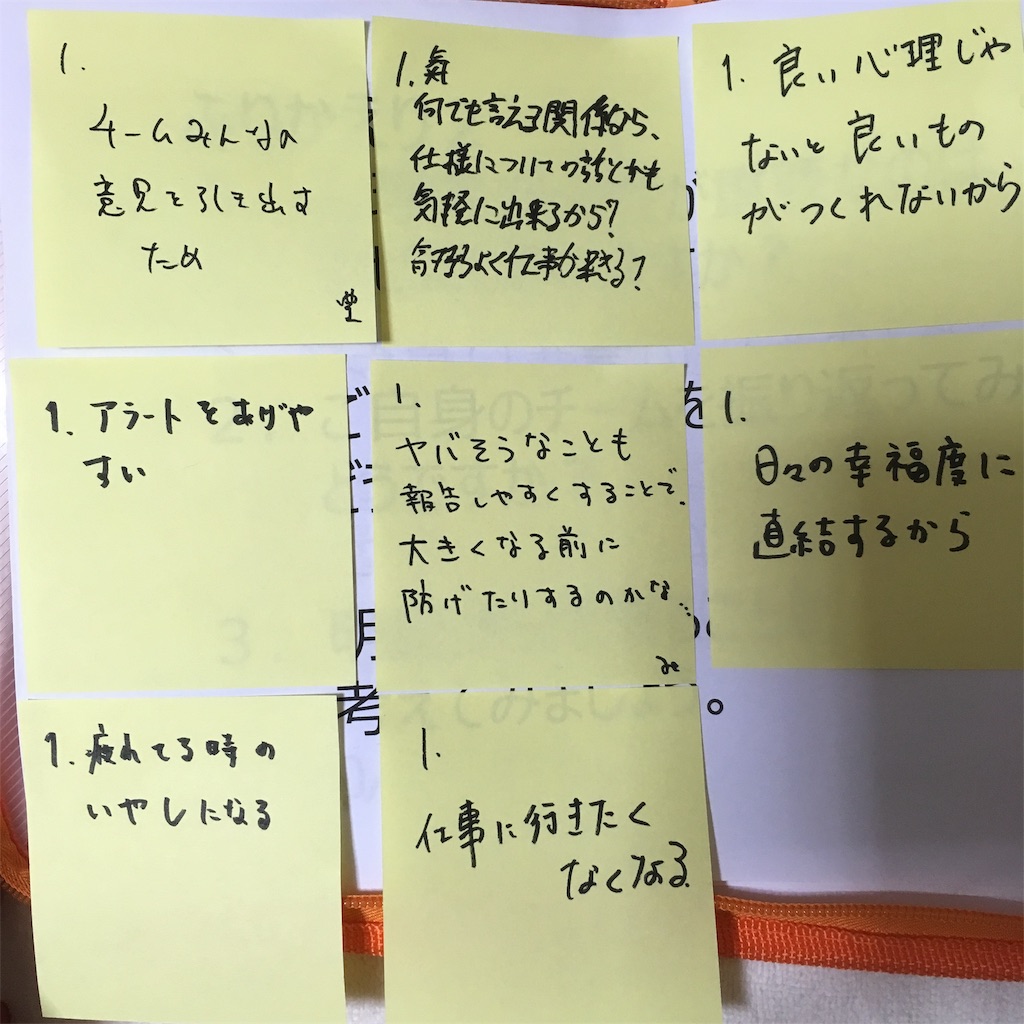 1.
チームみんなの
意見を引き出す
ため
1.
何でも言える関係なら、
仕様についての話とかも
気軽に出来るから?
効率よく仕事が出来る?
1. 良い心理じゃ
ないと良いもの
がつくれないから
1. アラートをあげや
すい
1.
ヤバそうなことも
報告しやすくすることで、
大きくなる前に
防げたりするのかな...
1.
日々の幸福度に
直結するから
1. 疲れてる時の
いやしになる
1.
仕事に行きたく
なくなる